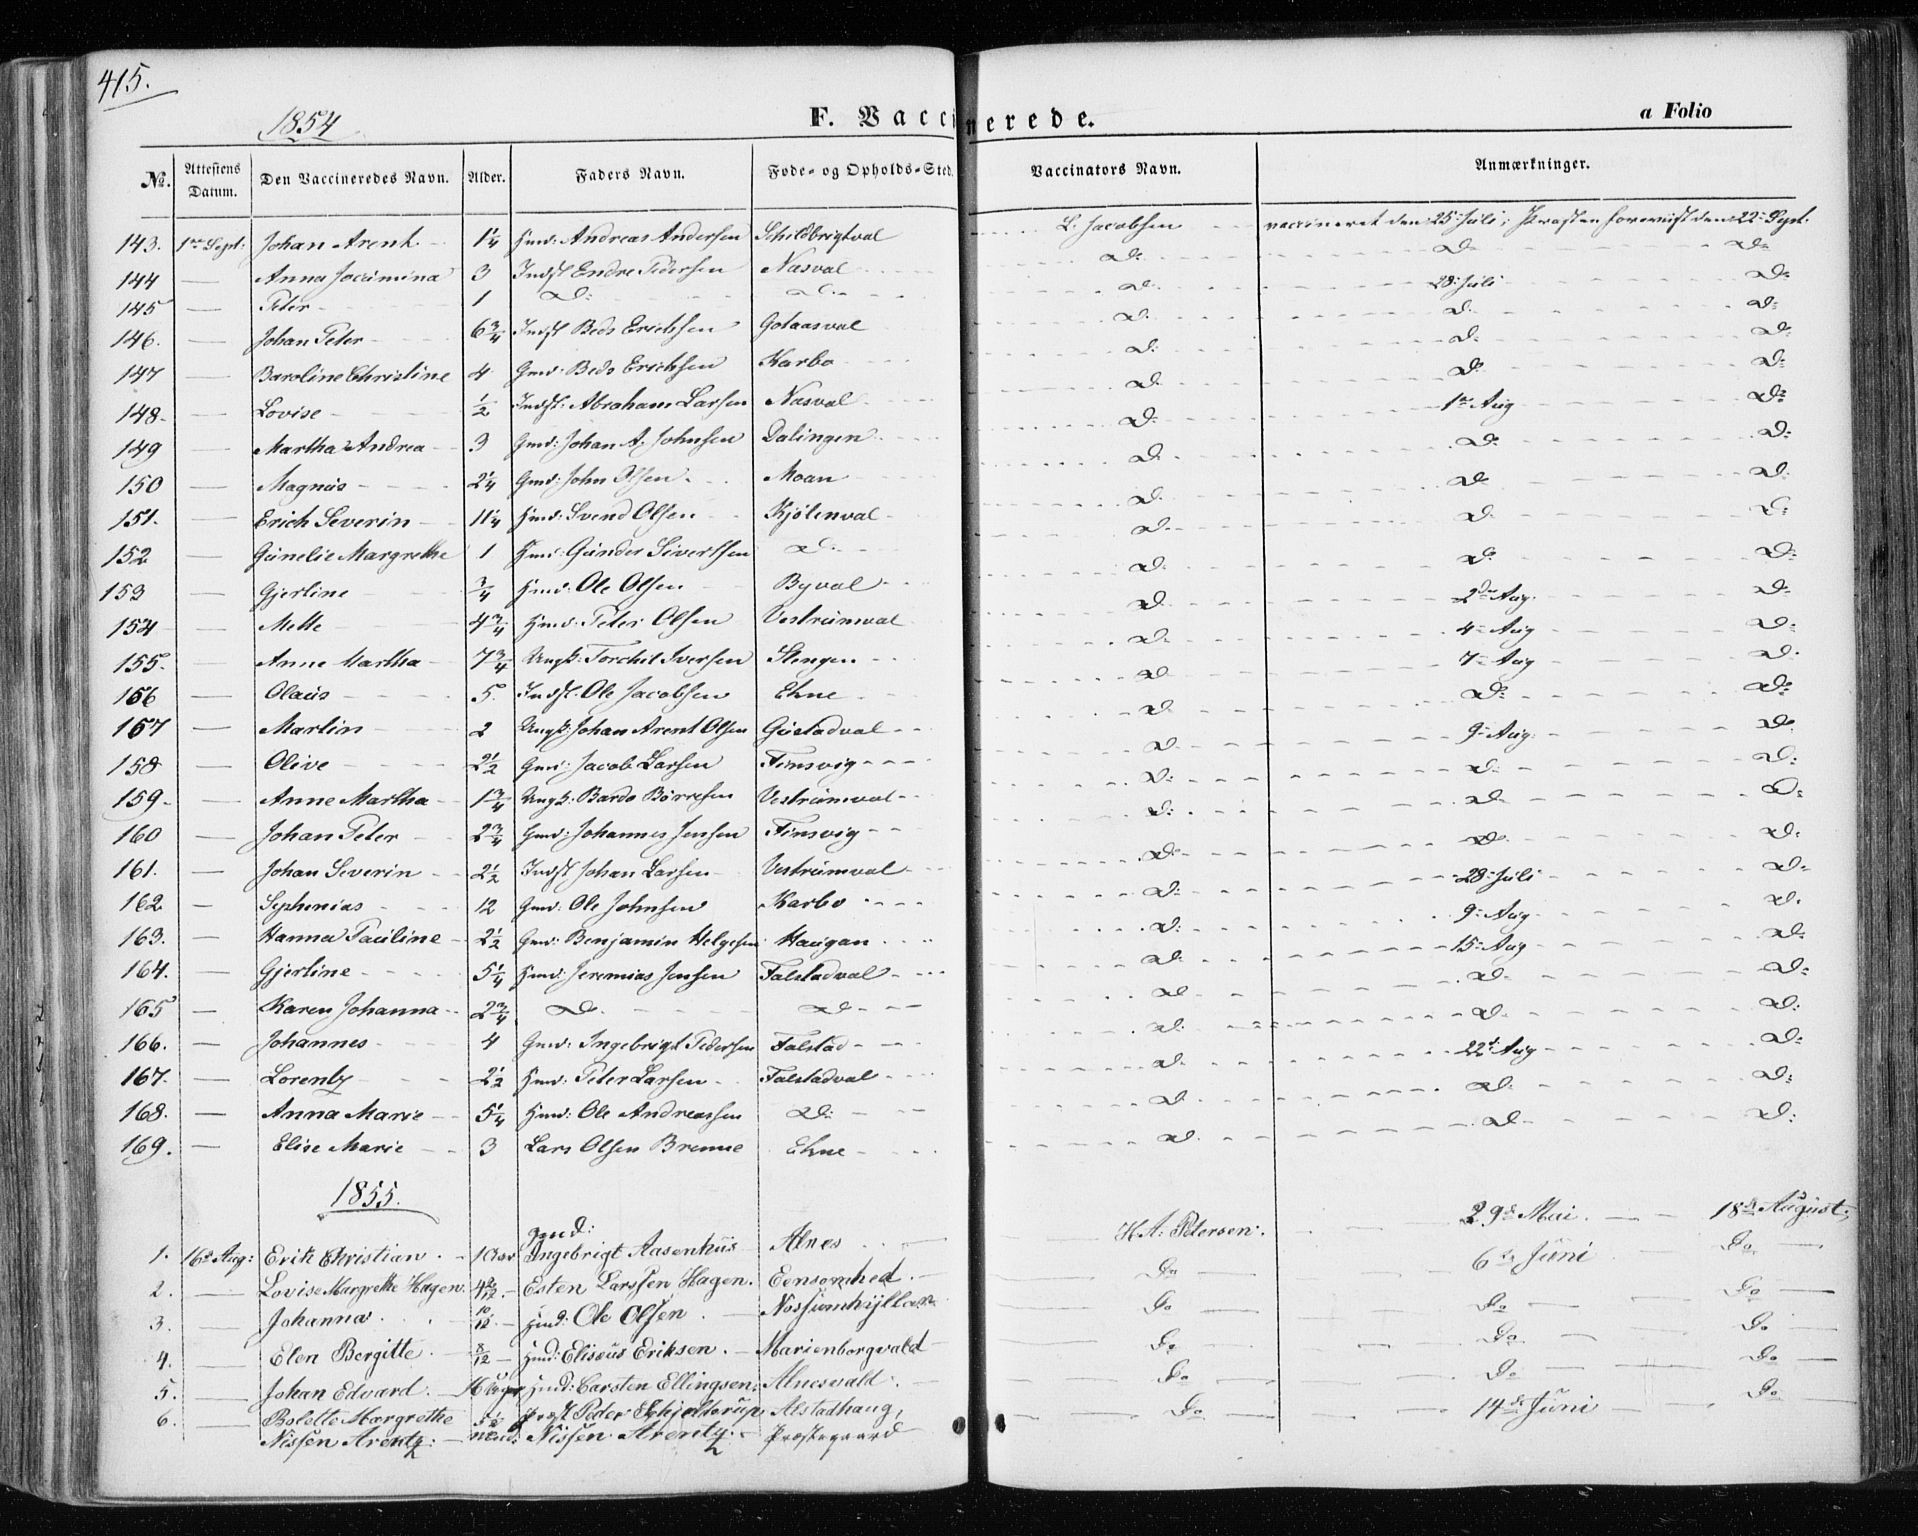 415.
1854
F. Vaccinerede.
a Folio
No. Attestens Datum. Den Vaccineredes Navn. Alder. Faders Navn. Føde- og Opholds-Sted. Vaccinators Navn. Anmærkninger.
143. 1ste Sept: Johan Arent 1 1/4 Hmd: Andreas Andersen Schildbrigtval L. Jacobsen vaccineret den 25de Juli; Prøsten foreviist den 22de Sept.
144 — Anna Jocumina 3 Indst Endre Pedersen Nasval Do Do Do
145 — Peter 1 Do Do Do 28 Juli Do
146. — Johan Peter 6 3/4 Indst Beds Erichsen Golaasval D. D. D:
147 — Baroline Christine 4 Gmd: Beds Erichsen Karbo D. D. D:
148. — Lovise 1/2 Indst: Abraham Larsen Nasval D. D. D:
149 — Martha Andrea 3 Gmd: Johan A. Johnsen Dalingen D. 1ste Aug D:
150 — Magnus 2 1/4 Gmd: John Olsen Moan D. D. D.
151. — Erich Severin 11 1/4 Hmd: Svend Olsen Kjölenval D. D. D.
152 — Gunelie Margrethe 1 Hmd: Gunder Sivertsen D. D. D. D:
153 — Gjertine 3/4 Hmd: Ole Olsen Byval D. D. D:
154 — Mette 4 3/4 Hmd: Peter Olsen Vestrumval D. 2den Aug. D:
155. — Anne Martha 7 3/4 Ungk: Torchil Iversen Stengen D. 4de Aug D:
156 — Olaus 5. Indst. Ole Jacobsen Ekne D. 7de Aug D.
157 — Martin 2 Ungk: Johan Arent Olsen Gustadval D. D: D:
158 — Olive 2 1/2 Gmd: Jacob Larsen Finsvig D. 9de Aug. D.
159. — Anne Martha 1 3/4 Ungk: Bardo Börresen Vestrumval D: D: D:
160 — Johan Peter 2 3/4 Gmd: Johannes Jensen Finsvig D. D. D:
161. — Johan Severin 2 1/2 Indst Johan Larsen Vestrumval D: D. D:
162 — Sephenias 12 Gmd: Ole Johnsen Karbo D: 28de Juli D:
163. — Hanna Pauline 2 1/2 Gmd: Benjamin Helgesen Haugan D: 9de Aug D.
164. — Gjertine 5 1/4 Hmd: Jeremias Jensen Falstadval D. 15de Aug D:
165 — Karen Johanna 2 3/4 D. D D. D. D:
166. — Johannes 4 Gmd: Ingebrigt Pedersen Falstad D. D. D:
167. — Lorents 2 1/2 Hmd: Peter Larsen Falstadval D. 22de Aug D:
168. — Anna Marie 5 1/4 Hmd: Ole Andreassen D: D. D. D:
169. — Elise Marie 3 Lars Olsen Brenne Ekne D. D. D:
1855.
Gmd:
1. 16de Aug: Erik Christian. 10 aar Ingebrigt Aasenhuus Alnes H.A: Petersen. 29de Mai. 18de August
2. — Lovise Margrethe Hagen. 4 2/12 Esten Larssen Hagen. Eensomhed. Do 6te Juni Do
3. — Johanna 10/12 Hmd: Ole Olsen Nossumhyllan Do Do Do
4. — Elen Bergitte. 8/12 Hmd: Eliseus Eriksen. Marienborgvald Do Do Do
5. — Johan Edvard. 16 Uger Hmd: Carsten Ellingsen. Alnesvald. Do Do Do
6. — Bolette Margrethe Provst Peder Schjelderup Alstadhaug, Do 14de Juni Do
Nissen Arentz. Nissen Arentz. Prestegaard